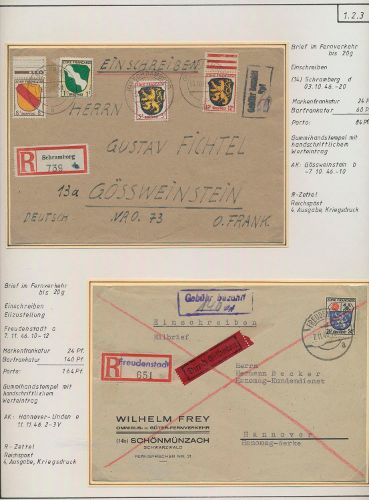 1.2.3
Brief im Fernverkehr
bis 20g
Einschreiben
(14) Schramberg d
03.10.46.-20
Markenfrankatur 24 Pf.
Barfrankatur 60 Pf.
Porto: 84 Pf.
Gummihandstempel mit
handschriftlichem
Werteintrag
AK: Gössweinstein b
-7.10.46.-10
R-Zettel
Reichspost
4. Ausgabe, Kriegsdruck
EINSCHREIBEN
HERRN
GUSTAV FICHTEL
13a GÖSSWEINSTEIN
DEUTSCH NRO. 73 O. FRANK.
R Schramberg
739
Brief im Fernverkehr
bis 20g
Einschreiben
Eilzustellung
Freudenstadt a
7.11.46.10-12
Markenfrankatur 24 Pf.
Barfrankatur 140 Pf.
Porto: 164 Pf.
Gummihandstempel mit
handschriftlichem
Werteintrag
AK: Hannover-Linden e
11.11.46.2-3V
R-Zettel
Reichspost
4. Ausgabe, Kriegsdruck
Gebühr bezahlt
Einschreiben
Eilbrief
R Freudenstadt
651
Herrn
Hermann Becker
Hanomag-Kundendienst
Hannover
Hanomag-Werke
WILHELM FREY
OMNIBUS- u. GÜTER-FERNVERKEHR
(14b) SCHÖNMÜNZACH
SCHWARZWALD
FERNSPRECHER NR. 31